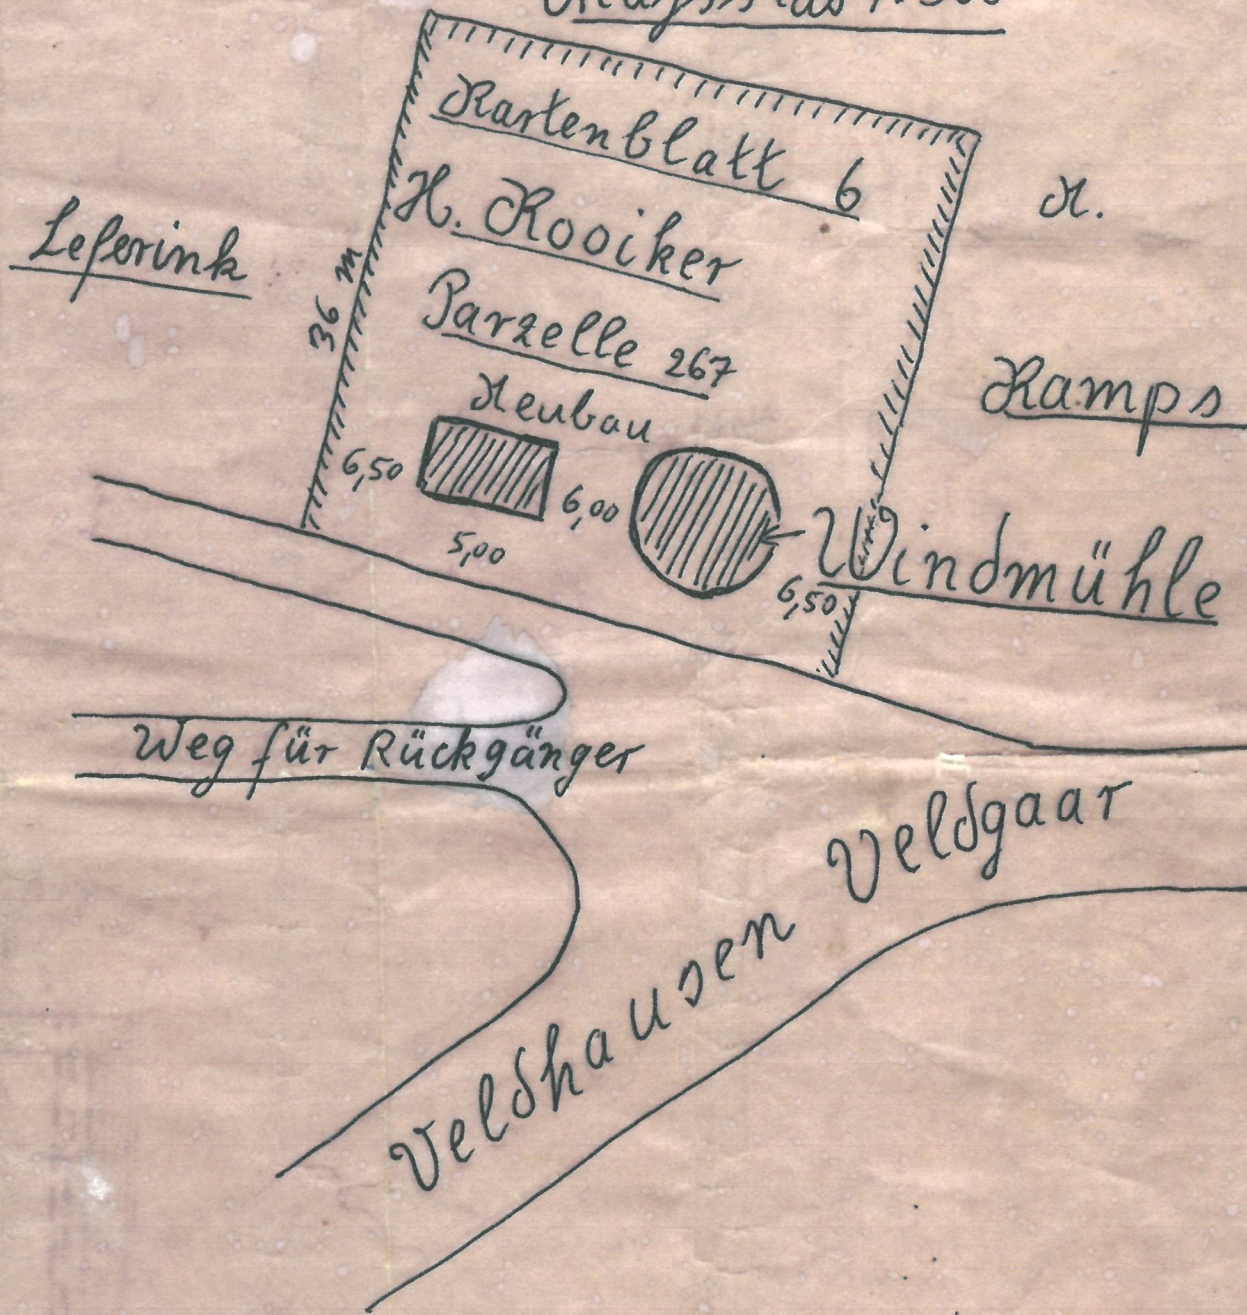 Kartenblatt 6
H. Kooiker
Parzelle 267
Neubau
Leferink
36 m
6,50
5,00
6,00
6,50
Windmühle
H.
Kamps
Weg für Rückgänger
Veldhausen Veldgaar